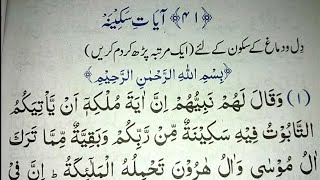 ﴿۴۱﴾ آیات سکینہ
دل و دماغ کے سکون کے لئے (ایک مرتبہ پڑھ کر دم کریں)
﴿بِسْمِ اللهِ الرَّحْمٰنِ الرَّحِيْمِ﴾
(۱) وَقَالَ لَهُمْ نَبِيُّهُمْ اِنَّ اٰيَةَ مُلْكِهٖٓ اَنْ يَّاْتِيَكُمُ
التَّابُوْتُ فِيْهِ سَكِيْنَةٌ مِّنْ رَّبِّكُمْ وَبَقِيَّةٌ مِّمَّا تَرَكَ
اٰلُ مُوْسٰى وَاٰلُ هٰرُوْنَ تَحْمِلُهُ الْمَلٰٓئِكَةُ ط اِنَّ فِيْ